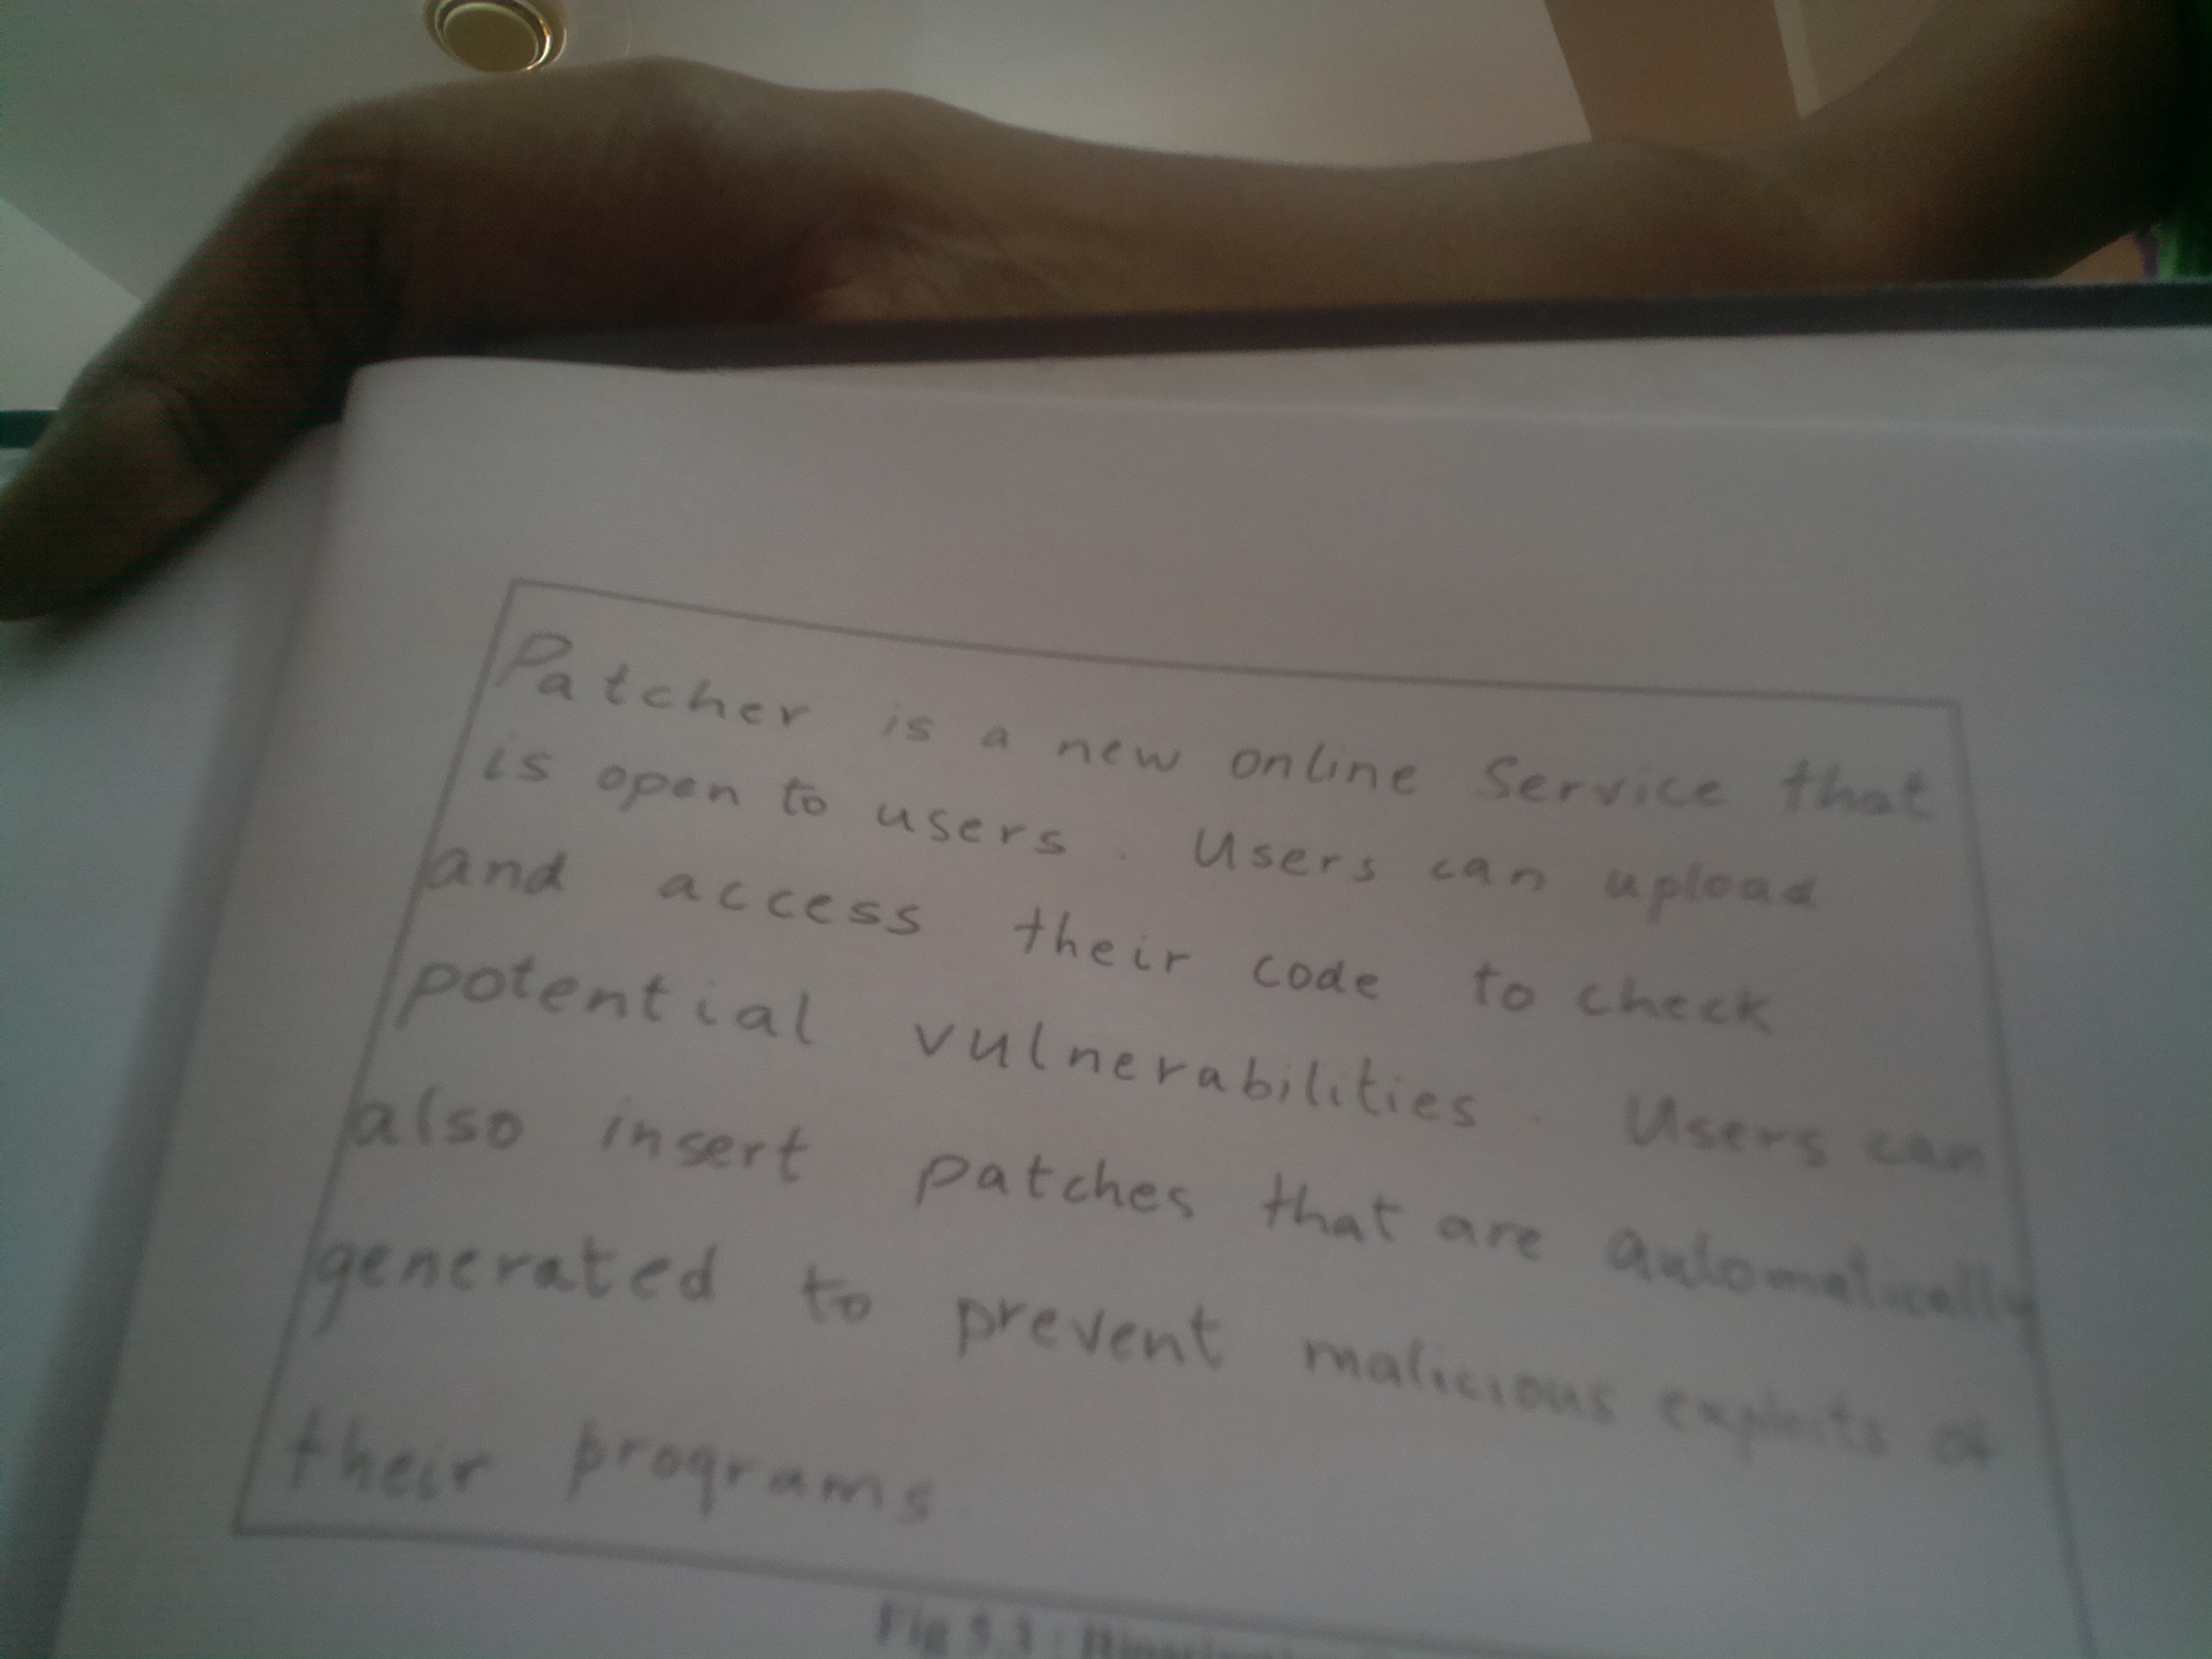 Patcher is a new online Service that
is open to users. Users can upload
and access their code to check
potential vulnerabilities. Users can
also insert patches that are automatically
generated to prevent malicious exploits of
their programs.
Fig